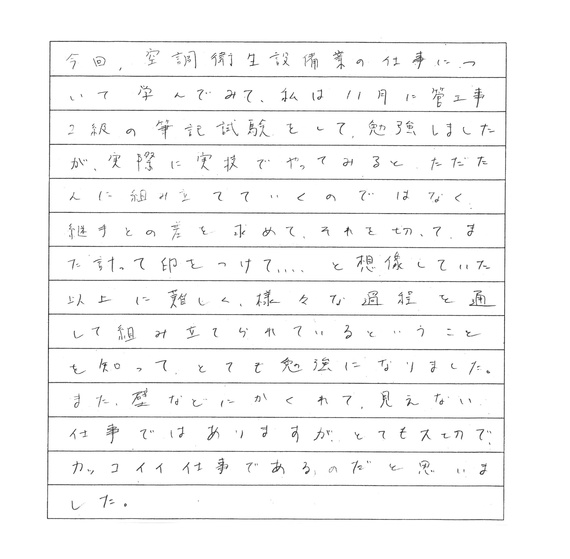 今回、空調衛生設備業の仕事につ
いて学んでみて、私は11月に管工事
2級の筆記試験をして、勉強しました
が、実際に実技でやってみると、ただた
んに組み立てていくのではなく、
継手との差を求めて、それを切って、ま
た計って印をつけて.... と想像していた
以上に難しく、様々な過程を通
して組み立てられているということ
を知って、とても勉強になりました。
また、壁などにかくれて、見えない
仕事ではありますが、とても大切で、
カッコイイ仕事であるのだと思いま
した。